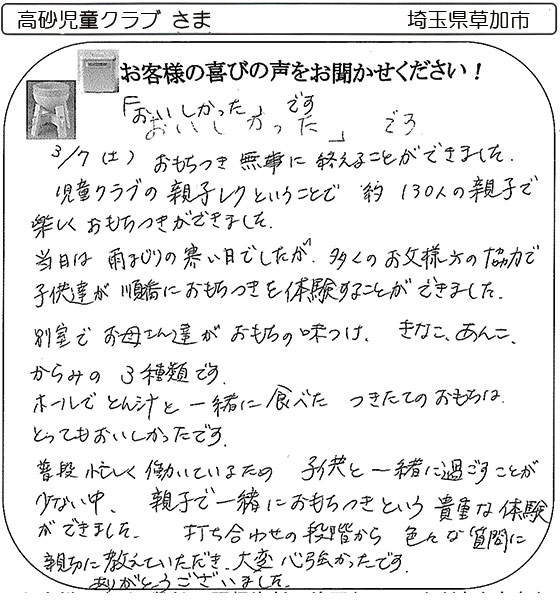 高砂児童クラブ さま 埼玉県草加市
お客様の喜びの声をお聞かせください！
「おいしかった」です
おいしかった」でる
3/7(土) おもちつき 無事に 終えることができました.
児童クラブの 親子レクということで 約 130人の親子で
楽しく おもちつきができました.
当日は 雨まじりの寒い日でしたが. 多くの お父様方の協力で
子供達が 順番に おもちつきを体験することが できました.
別室で お母さん達が おもちの味つけ. きなこ、あんこ.
からみの 3種類です.
ホールで とん汁と 一緒に 食べた つきたての おもちは
とってもおいしかったです.
普段 忙しく 働いているため 子供と一緒に過ごすことが
少ない中、 親子で一緒におもちつきという 貴重な体験
ができました. 打ち合わせの段階から 色んな質問に
親切に 教えていただき、大変 心強かったです.
ありがとうございました.